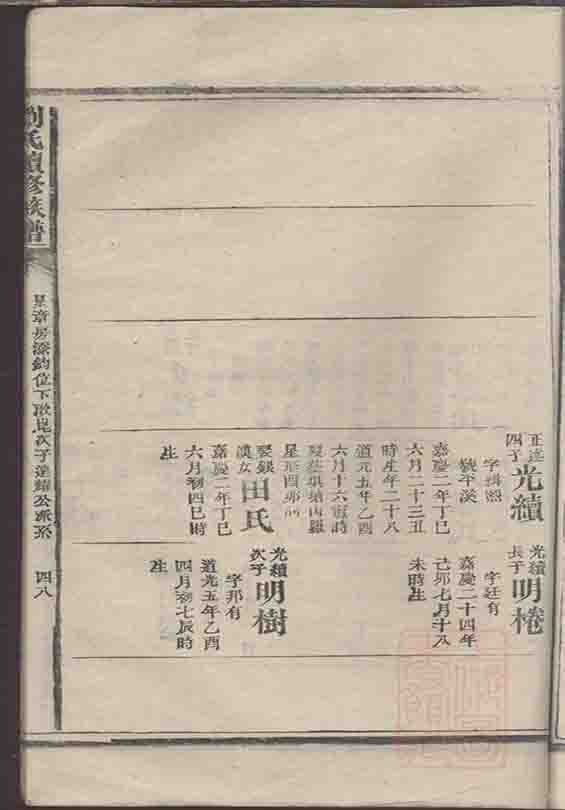 正達
四子
光續
字緝熙
號平溪
嘉慶二年丁巳
六月二十三丑
時生年二十八
道光五年乙酉
六月十六寅時
塘內
星形酉卯向
娶銀
漢女
田氏
嘉慶二年丁巳
六月初四巳時
生
光續
長子
明棬
字廷有
嘉慶二十四年
己卯七月十八
未時生
光續
次子
明樹
字邦有
道光五年乙酉
四月初七辰時
生
劉氏續修族譜
章房深鈞位下啟昆次子達耀公派系
四八